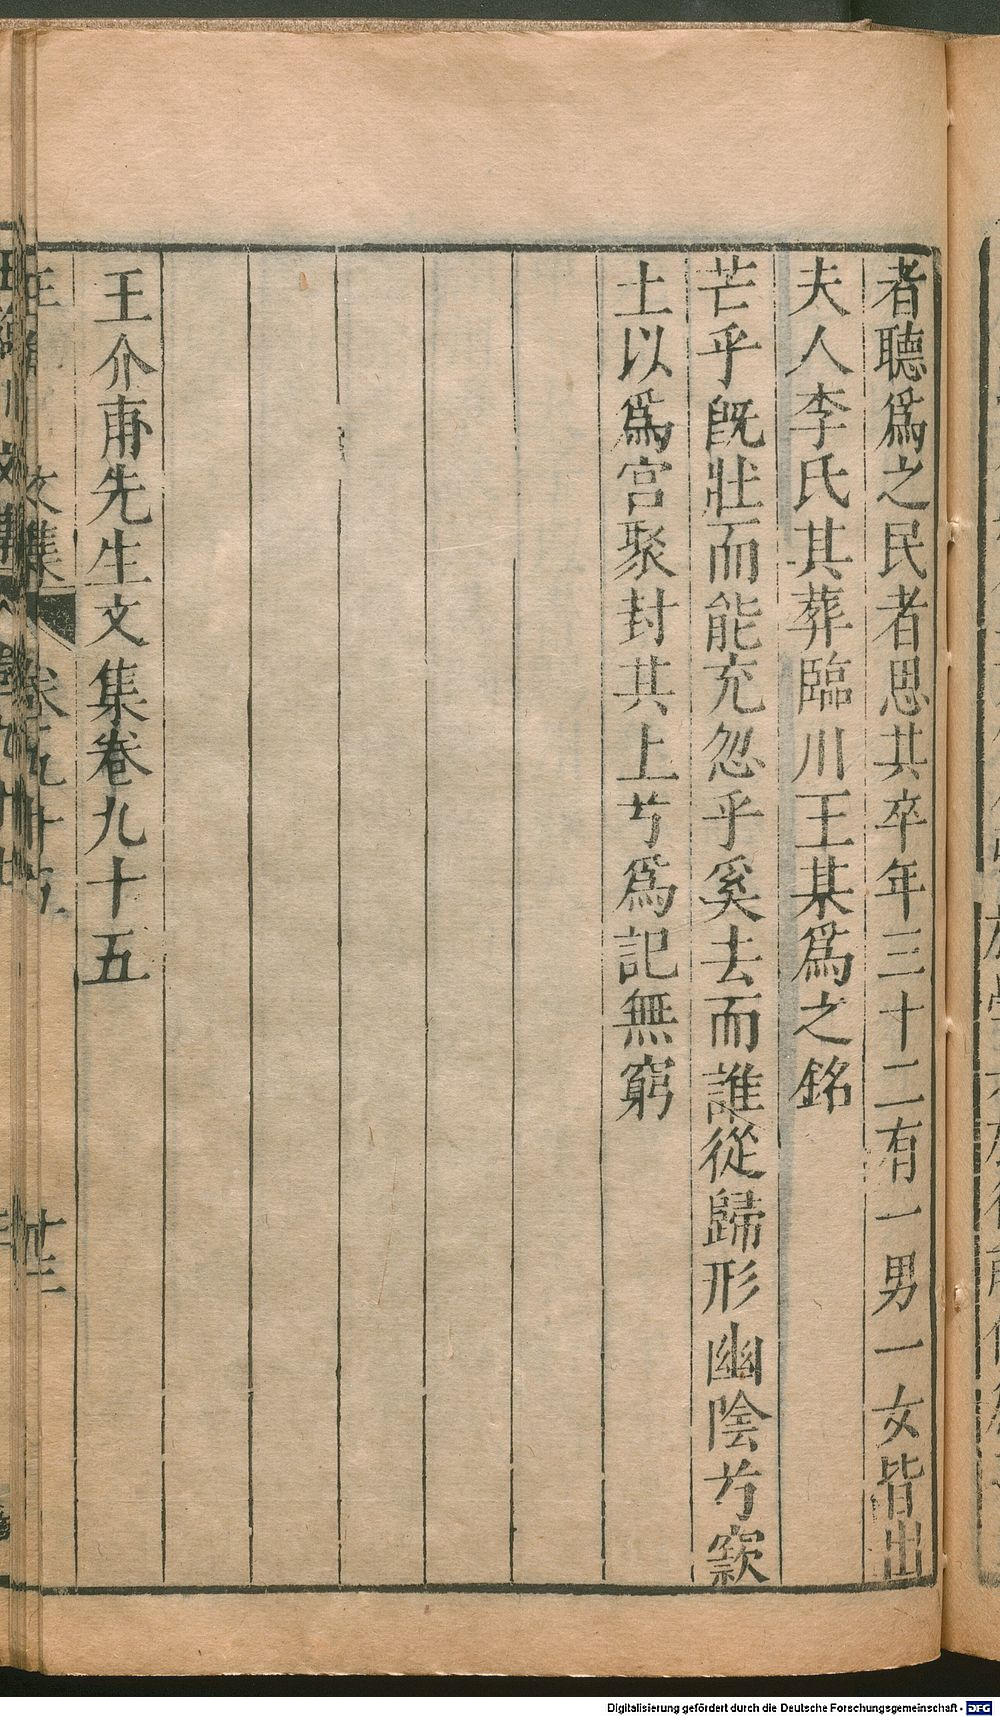 者聽爲之民者思其卒年三十二有一男一女皆出
夫人李氏其葬臨川王某爲之銘
芒乎旣壯而能充忽乎奚去而誰從歸形幽陰兮窾
土以爲宮聚封其上兮爲記無窮
王介甫先生文集卷九十五
文集 卷之九十五 廿三
Digitalisierung gefördert durch die Deutsche Forschungsgemeinschaft - DFG